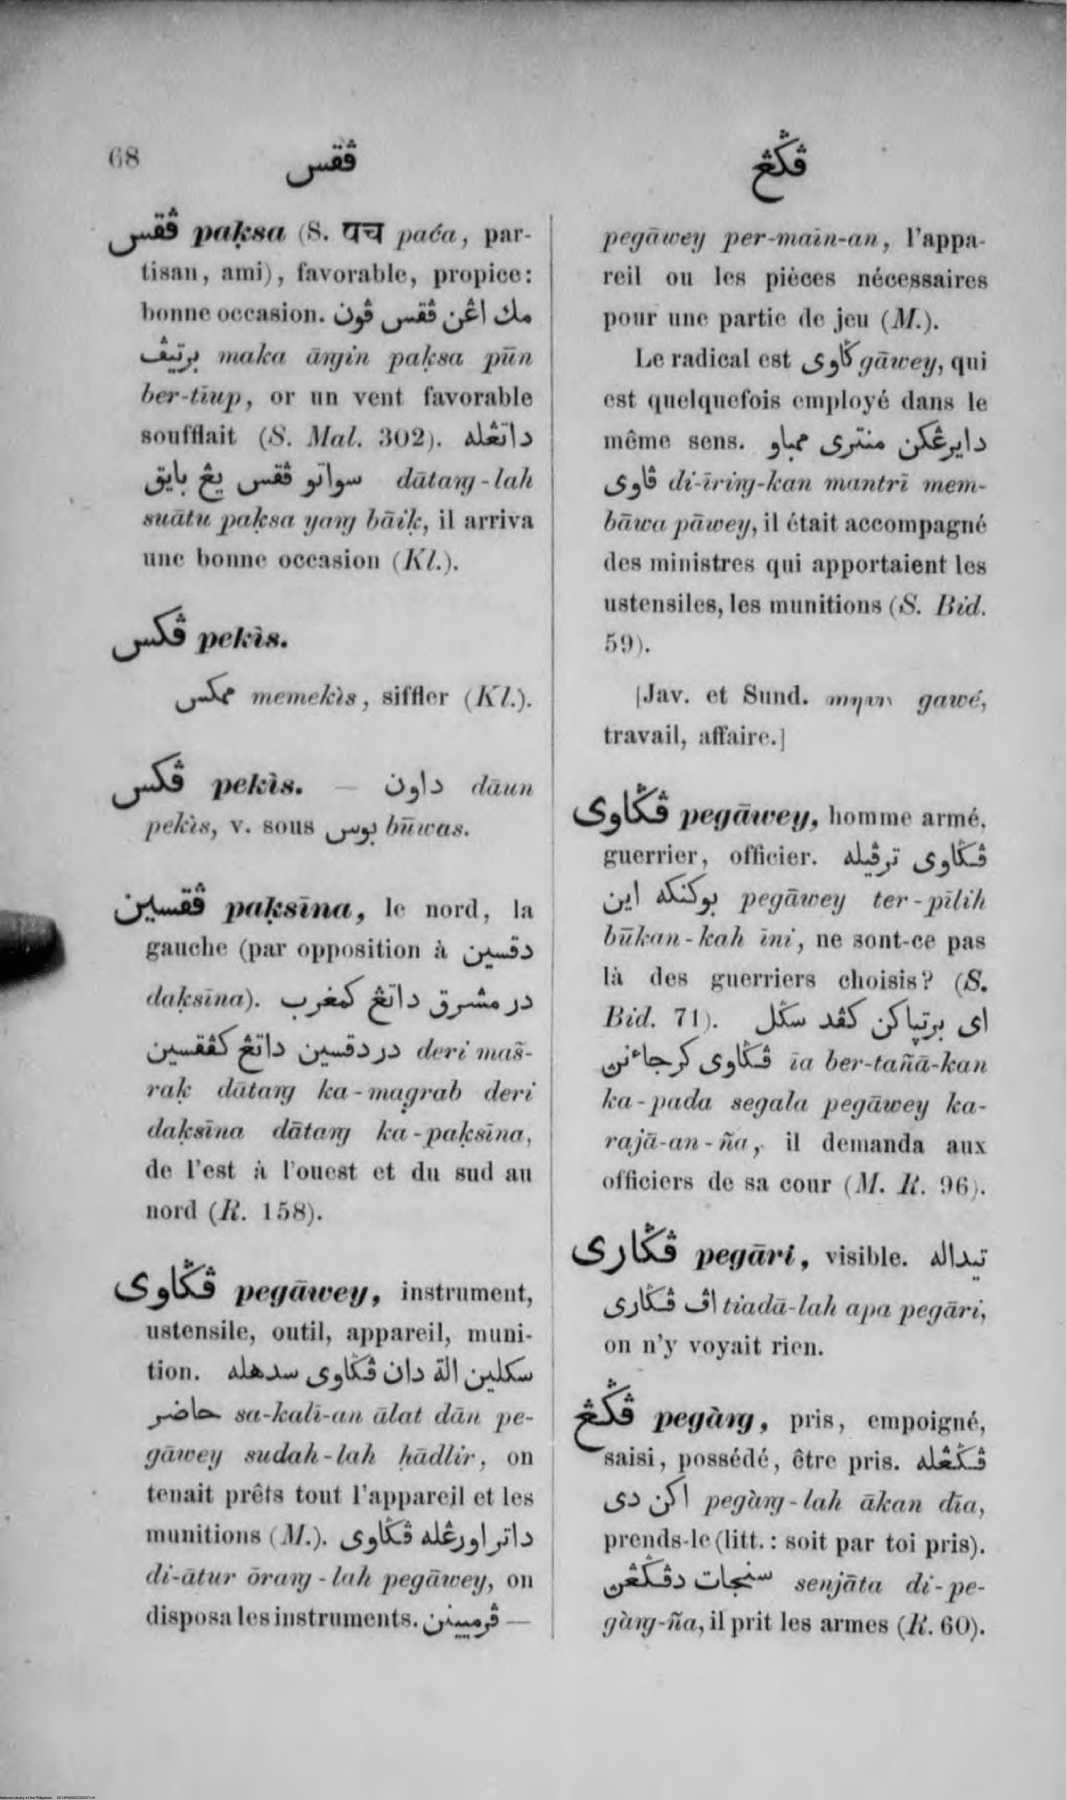 68
ڤقس
ڤݢڠ
ڤقس paḳsa (S. पच paća, par-
tisan, ami), favorable, propice:
bonne occasion. مك اڠن ڤقس ڤون
برتيڤ maka āṅgin paḳsa pūn
ber-tīup, or un vent favorable
soufflait (S. Mal. 302). داتڠله
سواتو ڤقس يڠ بايق dātaṅg-lah
suātu paḳsa yaṅg bāiḳ, il arriva
une bonne occasion (Kl.).
ڤكس pekìs.
ممكس memekìs, siffler (Kl.).
ڤكس pekìs. — داون dāun
pekìs, v. sous بوس būwas.
ڤقسين paḳsīna, le nord, la
gauche (par opposition à دقسين
daḳsīna). در مشرق داتڠ كمغرب
در دقسين داتڠ كڤقسين deri maš-
raḳ dātaṅg ka-magrab deri
daḳsīna dātaṅg ka-paḳsīna,
de l'est à l'ouest et du sud au
nord (R. 158).
ڤݢاوى pegāwey, instrument,
ustensile, outil, appareil, muni-
tion. سكلين الة دان ڤݢاوى سدهله
حاضر sa-kalī-an ālat dān pe-
gāwey sudah-lah ḥādlir, on
tenait prêts tout l'appareil et les
munitions (M.). داتر اورڠله ڤݢاوى
di-ātur ōraṅg-lah pegāwey, on
disposa les instruments. ڤرميينن —
pegāwey per-maìn-an, l'appa-
reil ou les pièces nécessaires
pour une partie de jeu (M.).
Le radical est ݢاوى gāwey, qui
est quelquefois employé dans le
même sens. دايرڠكن منترى ممباو
ڤاوى di-īriṅg-kan mantrī mem-
bāwa pāwey, il était accompagné
des ministres qui apportaient les
ustensiles, les munitions (S. Bid.
59).
[Jav. et Sund. gawé,
travail, affaire.]
ڤݢاوى pegāwey, homme armé,
guerrier, officier. ڤݢاوى ترڤيله
بوكنكه اين pegāwey ter-pīlih
būkan-kah īni, ne sont-ce pas
là des guerriers choisis? (S.
Bid. 71). اى برتڽاكن كڤد سݢل
ڤݢاوى كرجاءنڽ īa ber-tañā-kan
ka-pada segala pegāwey ka-
rajā-an-ña, il demanda aux
officiers de sa cour (M. R. 96).
ڤݢارى pegāri, visible. تيداله
اڤ ڤݢارى tiadā-lah apa pegāri,
on n'y voyait rien.
ڤݢڠ pegàṅg, pris, empoigné,
saisi, possédé, être pris. ڤݢڠله
اكن دى pegàṅg-lah ākan dīa,
prends-le (litt.: soit par toi pris).
سنجات دڤݢڠڽ senjāta di-pe-
gàṅg-ña, il prit les armes (R. 60).